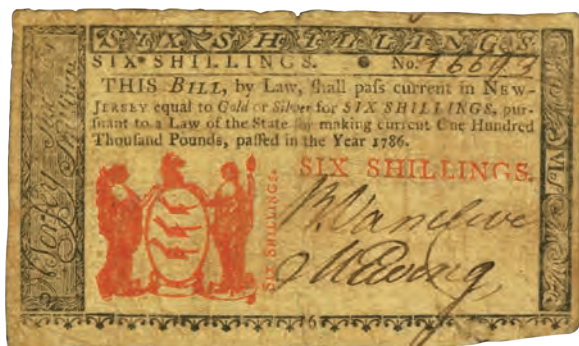 SIX SHILLINGS
SIX SHILLINGS. No. 16693
THIS BILL, by Law, ſhall paſs current in NEW-
JERSEY equal to Gold or Silver for SIX SHILLINGS, pur-
ſuant to a Law of the State for making current One Hundred
Thouſand Pounds, paſſed in the Year 1786.
SIX SHILLINGS.
SIX SHILLINGS.
B. Vancleve
Ewing
6